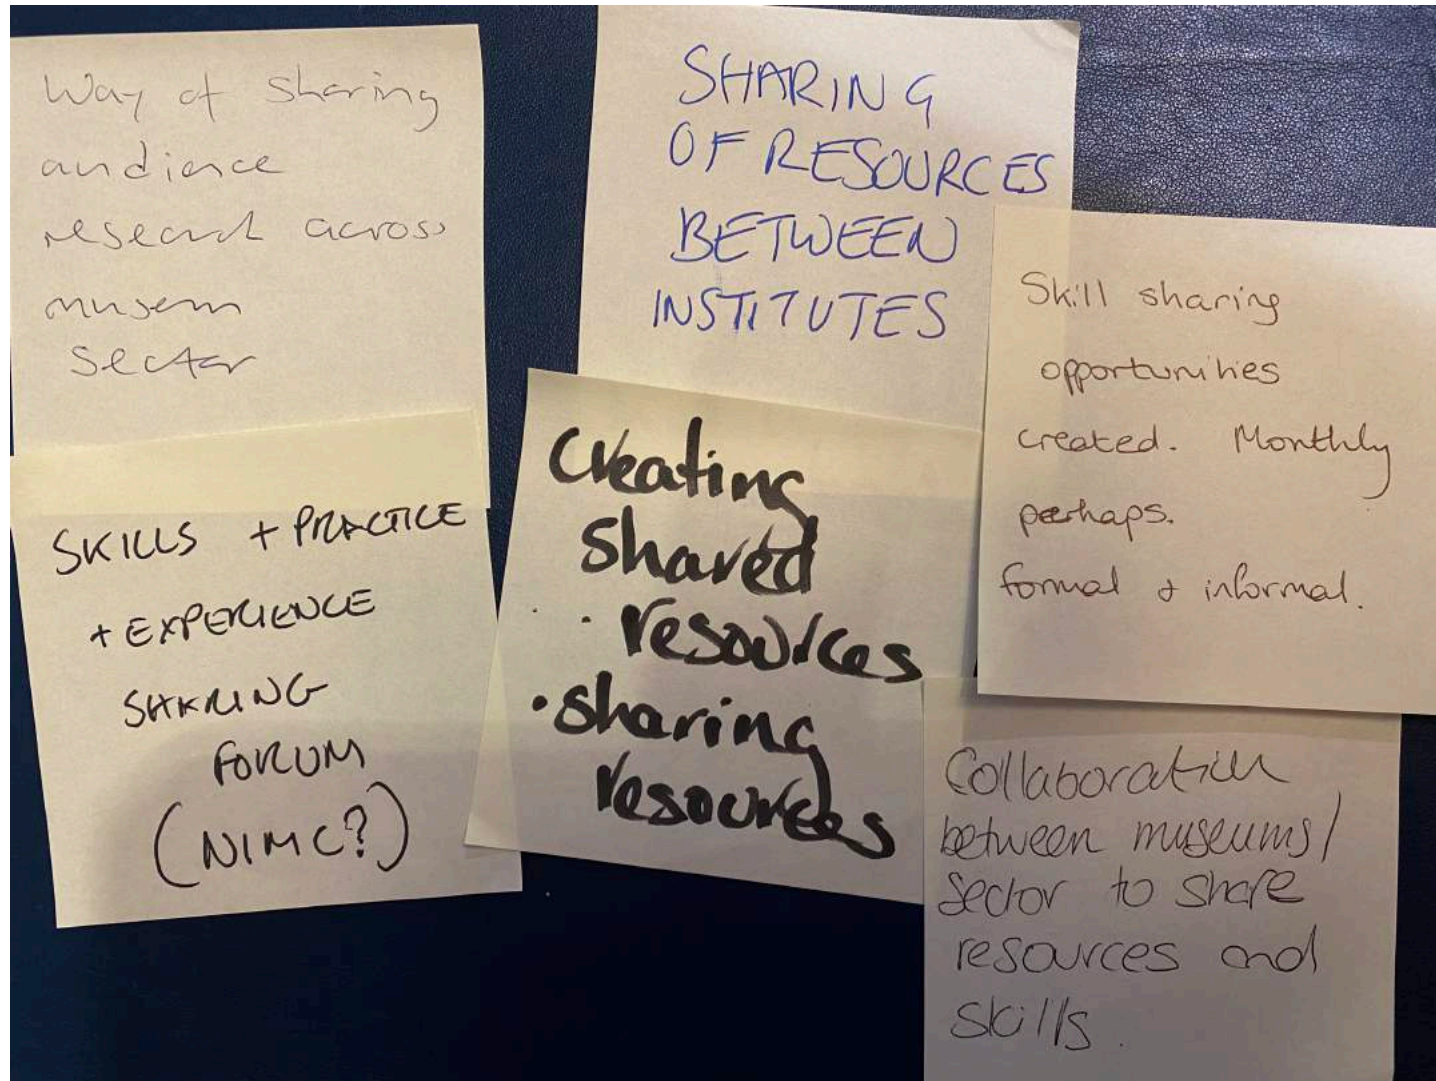 Way of sharing
audience
research across
museum
sector
SHARING
OF RESOURCES
BETWEEN
INSTITUTES
Skill sharing
opportunities
created. Monthly
perhaps.
formal + informal.
SKILLS + PRACTICE
+ EXPERIENCE
SHARING
FORUM
(NIMC?)
Creating
shared
· resources
· sharing
resources
Collaboration
between museums/
sector to share
resources and
skills.